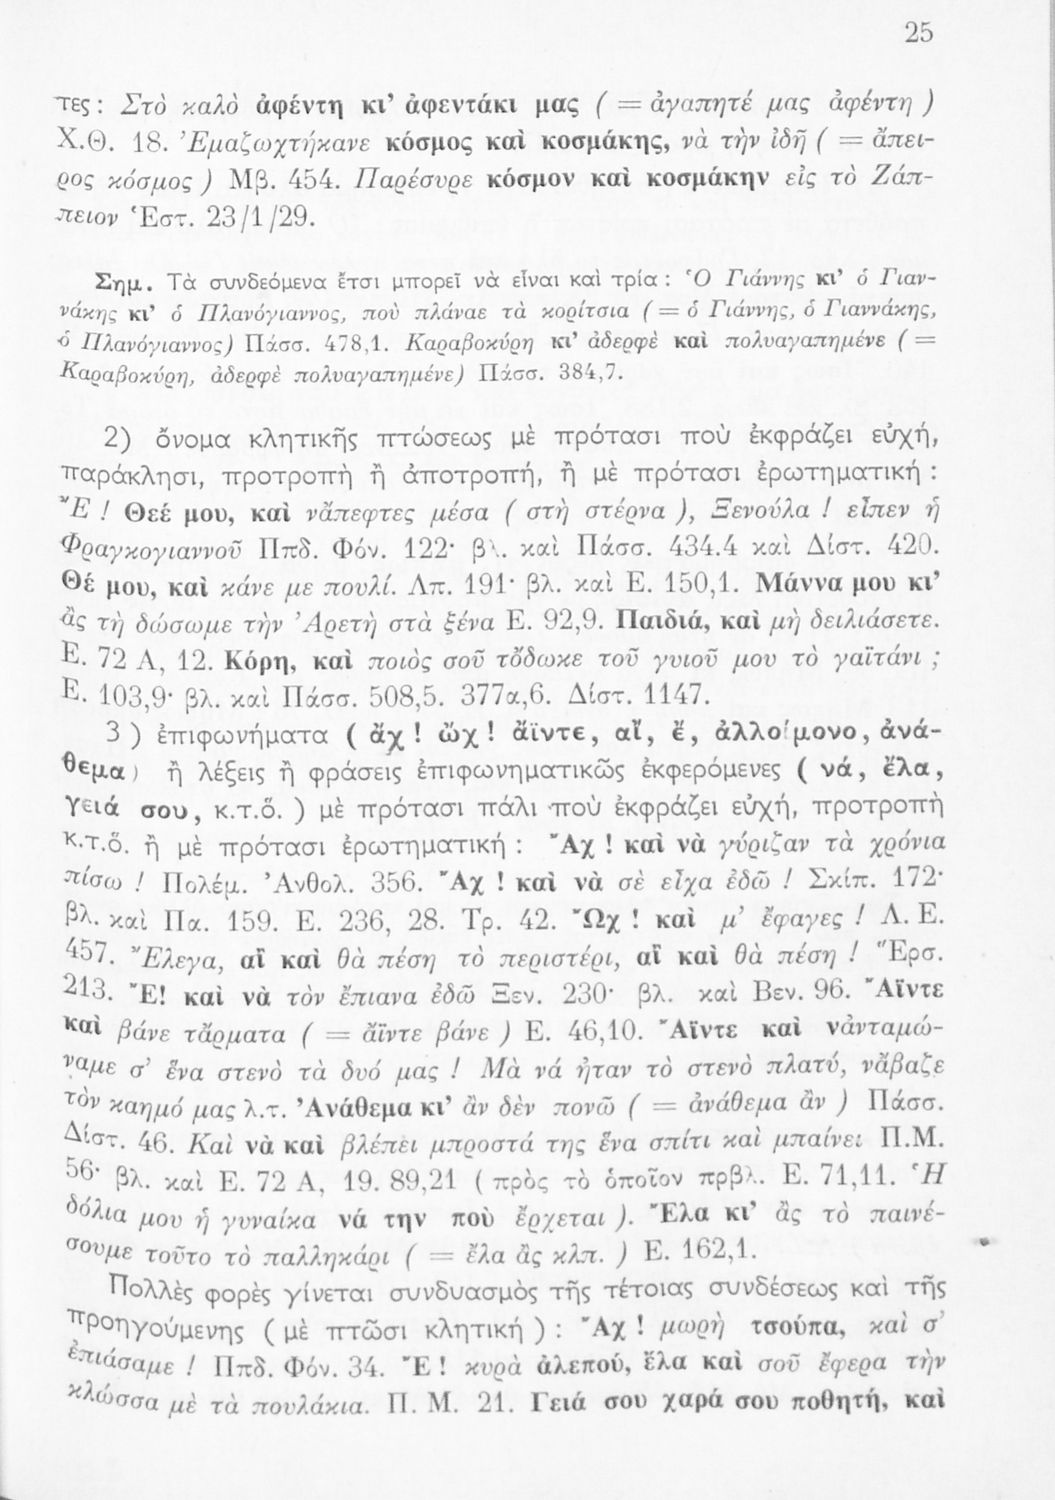 25
τες : Στὸ καλὸ ἀφέντη κι’ ἀφεντάκι μας ( = ἀγαπητέ μας ἀφέντη )
Χ.Θ. 18. ’Εμαζωχτήκανε κόσμος καὶ κοσμάκης, νὰ τὴν ἰδῆ ( = ἄπει-
ρος κόσμος ) Μβ. 454. Παρέσυρε κόσμον καὶ κοσμάκην εἰς τὸ Ζάπ-
πειον Ἑστ. 23/1/29.
Σημ. Τὰ συνδεόμενα ἔτσι μπορεῖ νὰ εἶναι καὶ τρία : Ὁ Γιάννης κι’ ὁ Γιαν-
νάκης κι’ ὁ Πλανόγιαννος, ποὺ πλάναε τὰ κορίτσια ( = ὁ Γιάννης, ὁ Γιαννάκης,
ὁ Πλανόγιαννος) Πάσσ. 478,1. Καραβοκύρη κι’ ἀδερφὲ καὶ πολυαγαπημένε ( =
Καραβοκύρη, ἀδερφὲ πολυαγαπημένε) Πάσσ. 384,7.
2) ὄνομα κλητικῆς πτώσεως μὲ πρότασι ποὺ ἐκφράζει εὐχή,
παράκλησι, προτροπὴ ἢ ἀποτροπή, ἢ μὲ πρότασι ἐρωτηματική :
Ἔ ! Θεέ μου, καὶ νἄπεφτες μέσα ( στὴ στέρνα ), Ξενούλα ! εἶπεν ἡ
Φραγκογιαννοῦ Ππδ. Φόν. 122· βλ. καὶ Πάσσ. 434.4 καὶ Δίστ. 420.
Θέ μου, καὶ κάνε με πουλί. Λπ. 191· βλ. καὶ Ε. 150,1. Μάννα μου κι’
ἂς τὴ δώσωμε τὴν ’Αρετὴ στὰ ξένα Ε. 92,9. Παιδιά, καὶ μὴ δειλιάσετε.
Ε. 72 Α, 12. Κόρη, καὶ ποιὸς σοῦ τὄδωκε τοῦ γυιοῦ μου τὸ γαϊτάνι ;
Ε. 103,9· βλ. καὶ Πάσσ. 508,5. 377α,6. Δίστ. 1147.
3 ) ἐπιφωνήματα ( ἄχ ! ὤχ ! ἄϊντε, αἴ, ἔ, ἀλλοίμονο, ἀνά-
θεμα ) ἢ λέξεις ἢ φράσεις ἐπιφωνηματικῶς ἐκφερόμενες ( νά, ἔλα,
γειά σου, κ.τ.ὅ. ) μὲ πρότασι πάλι ποὺ ἐκφράζει εὐχή, προτροπὴ
κ.τ.ὅ. ἢ μὲ πρότασι ἐρωτηματική : Ἄχ ! καὶ νὰ γύριζαν τὰ χρόνια
πίσω ! Πολέμ. ’Ανθολ. 356. Ἄχ ! καὶ νὰ σὲ εἶχα ἐδῶ ! Σκίπ. 172·
βλ. καὶ Πα. 159. Ε. 236, 28. Τρ. 42. Ὤχ ! καὶ μ’ ἔφαγες ! Λ. Ε.
457. Ἔλεγα, αἲ καὶ θὰ πέση τὸ περιστέρι, αἲ καὶ θὰ πέση ! Ἔρσ.
213. Ἔ! καὶ νὰ τὸν ἔπιανα ἐδῶ Ξεν. 230· βλ. καὶ Βεν. 96. Ἄϊντε
καὶ βάνε τἄρματα ( = ἄϊντε βάνε ) Ε. 46,10. Ἄϊντε καὶ νἀνταμώ-
ναμε σ’ ἕνα στενὸ τὰ δυό μας ! Μὰ νά ἦταν τὸ στενὸ πλατύ, νἄβαζε
τὸν καημό μας λ.τ. ’Ανάθεμα κι’ ἂν δὲν πονῶ ( = ἀνάθεμα ἂν ) Πάσσ.
Δίστ. 46. Καὶ νὰ καὶ βλέπει μπροστά της ἕνα σπίτι καὶ μπαίνει Π.Μ.
56· βλ. καὶ Ε. 72 Α, 19. 89,21 ( πρὸς τὸ ὁποῖον πρβλ. Ε. 71,11. Ἡ
δόλια μου ἡ γυναίκα νά την ποὺ ἔρχεται ). Ἔλα κι’ ἂς τὸ παινέ-
σουμε τοῦτο τὸ παλληκάρι ( = ἔλα ἂς κλπ. ) Ε. 162,1.
Πολλὲς φορὲς γίνεται συνδυασμὸς τῆς τέτοιας συνδέσεως καὶ τῆς
προηγούμενης ( μὲ πτῶσι κλητική ) : Ἄχ ! μωρὴ τσούπα, καὶ σ’
ἐπιάσαμε ! Ππδ. Φόν. 34. Ἔ ! κυρὰ ἀλεπού, ἔλα καὶ σοῦ ἔφερα τὴν
κλώσσα μὲ τὰ πουλάκια. Π. Μ. 21. Γειά σου χαρά σου ποθητή, καὶ